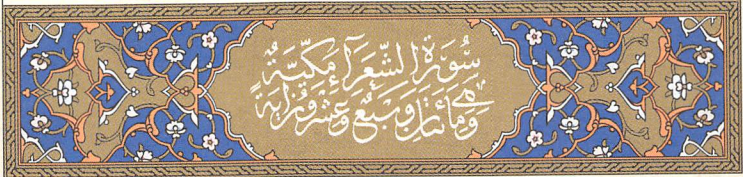 سُورَةُ الشُّعَرَآءِ مَكِّيَّةٌ
وَهِيَ مِائَتَانِ وَسَبْعٌ وَعِشْرُونَ اٰيَةً